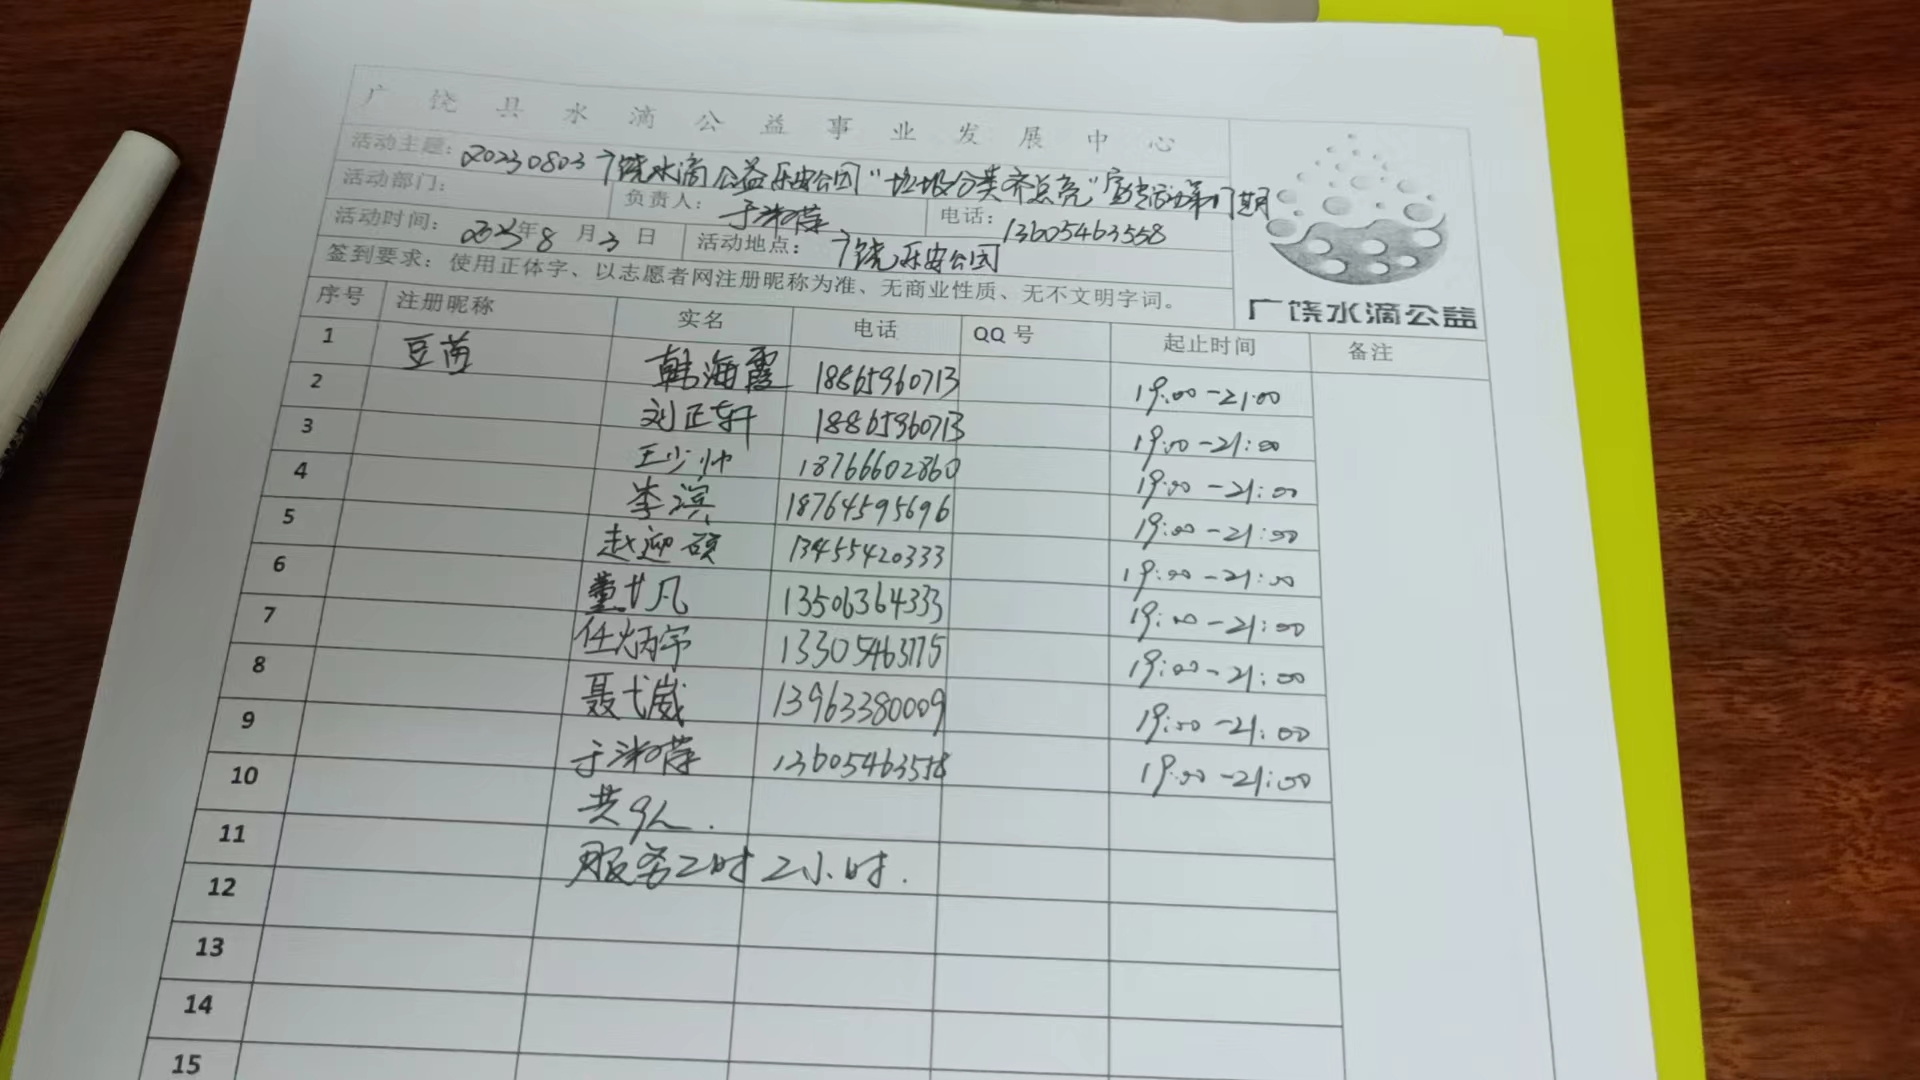 广饶县水滴公益事业发展中心
活动主题：20230803广饶水滴公益乐安公园“垃圾分类齐点亮”宣传活动第17期
活动部门： 负责人：于淑萍 电话：13605463558
活动时间：2023年8月3日 活动地点：广饶乐安公园
签到要求：使用正体字、以志愿者网注册昵称为准、无商业性质、无不文明字词。
广饶水滴公益
序号 注册昵称 实名 电话 QQ号 起止时间 备注
1 豆苗 韩海霞 18865960713 19:00-21:00
2 刘正轩 18865960713 19:00-21:00
3 王少帅 18766602860 19:00-21:00
4 李滨 18764595696 19:00-21:00
5 赵迎硕 13455420333 19:00-21:00
6 董凡 13506364333 19:00-21:00
7 任炳宇 13305463775 19:00-21:00
8 聂弋崴 13963380009 19:00-21:00
9 于淑萍 13605463558 19:00-21:00
10 共9人.
11 服务2时2小时.
12
13
14
15